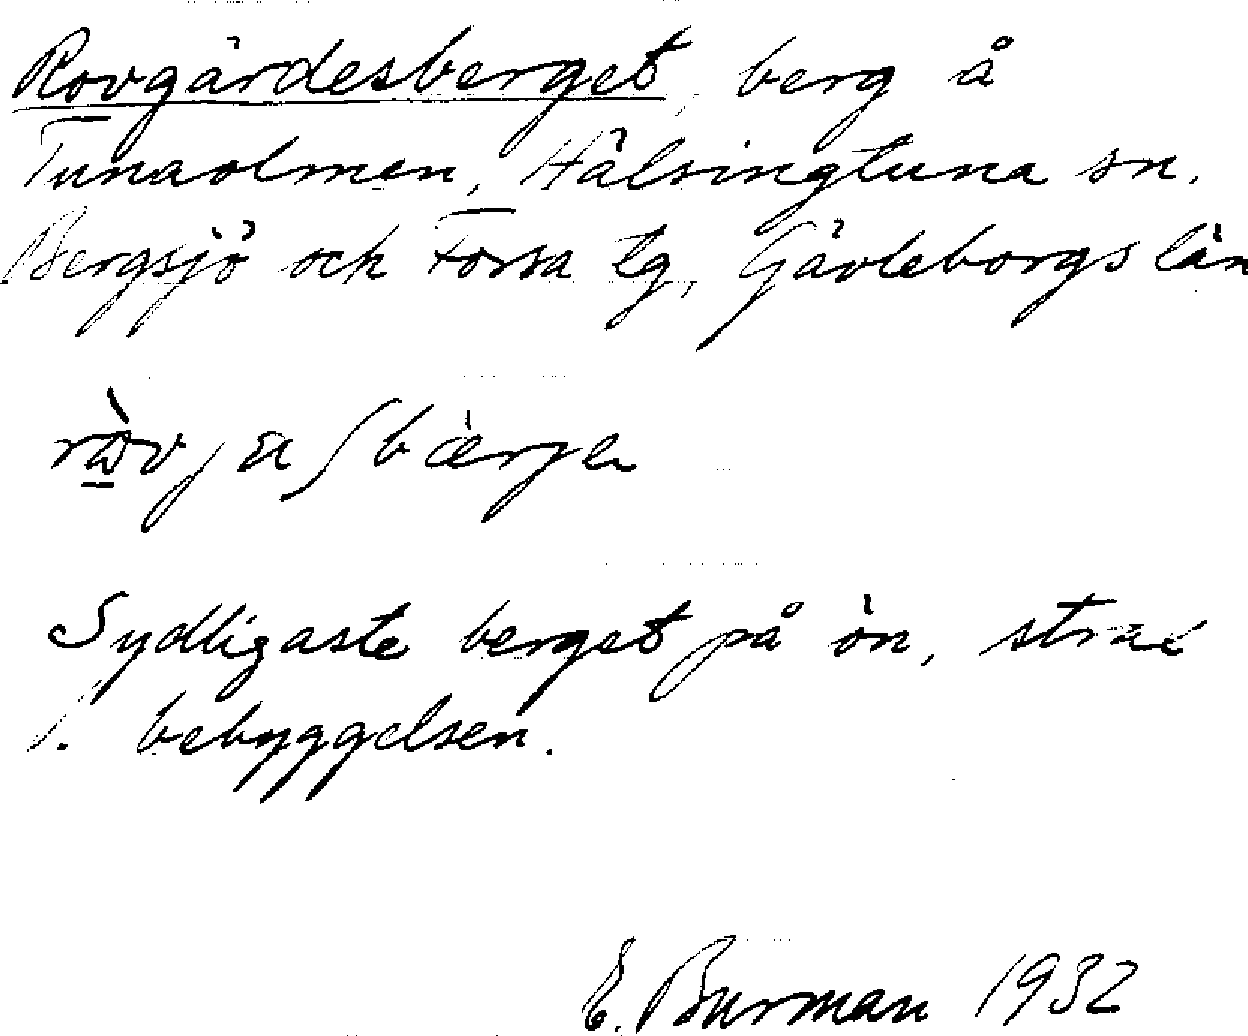 Rovgärdesberget, berg å
Tunaolmen, Hälsingtuna sn.
Bergsjö och Forsa tg, Gävleborgs län
Sydligaste berget på ön, strax
bebyggelsen.
E. Burman 1932